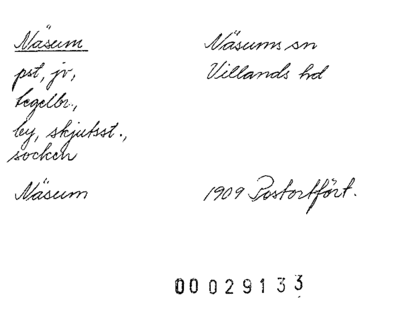 Näsum Näsums sn
pst, jv, Villands hd
tegelbr.,
by, skjutsst.,
socken
Näsum 1909 Postortfört.
00029133